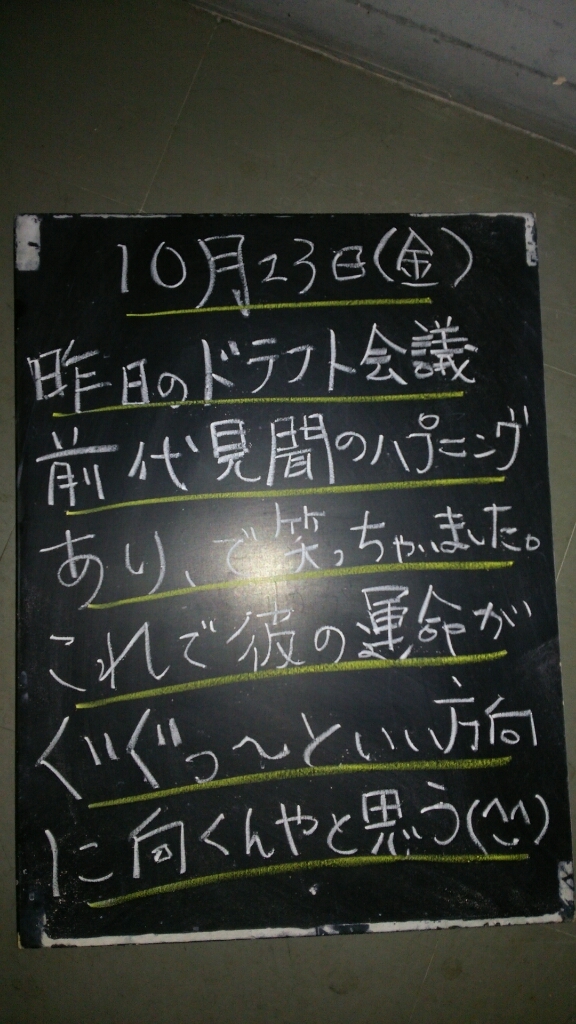 10月23日(金)
昨日のドラフト会議
前代見聞のハプニング
あり、で笑っちゃいました。
これで彼の運命が
ぐぐっ〜といい方向
に向くんやと思う(^^)